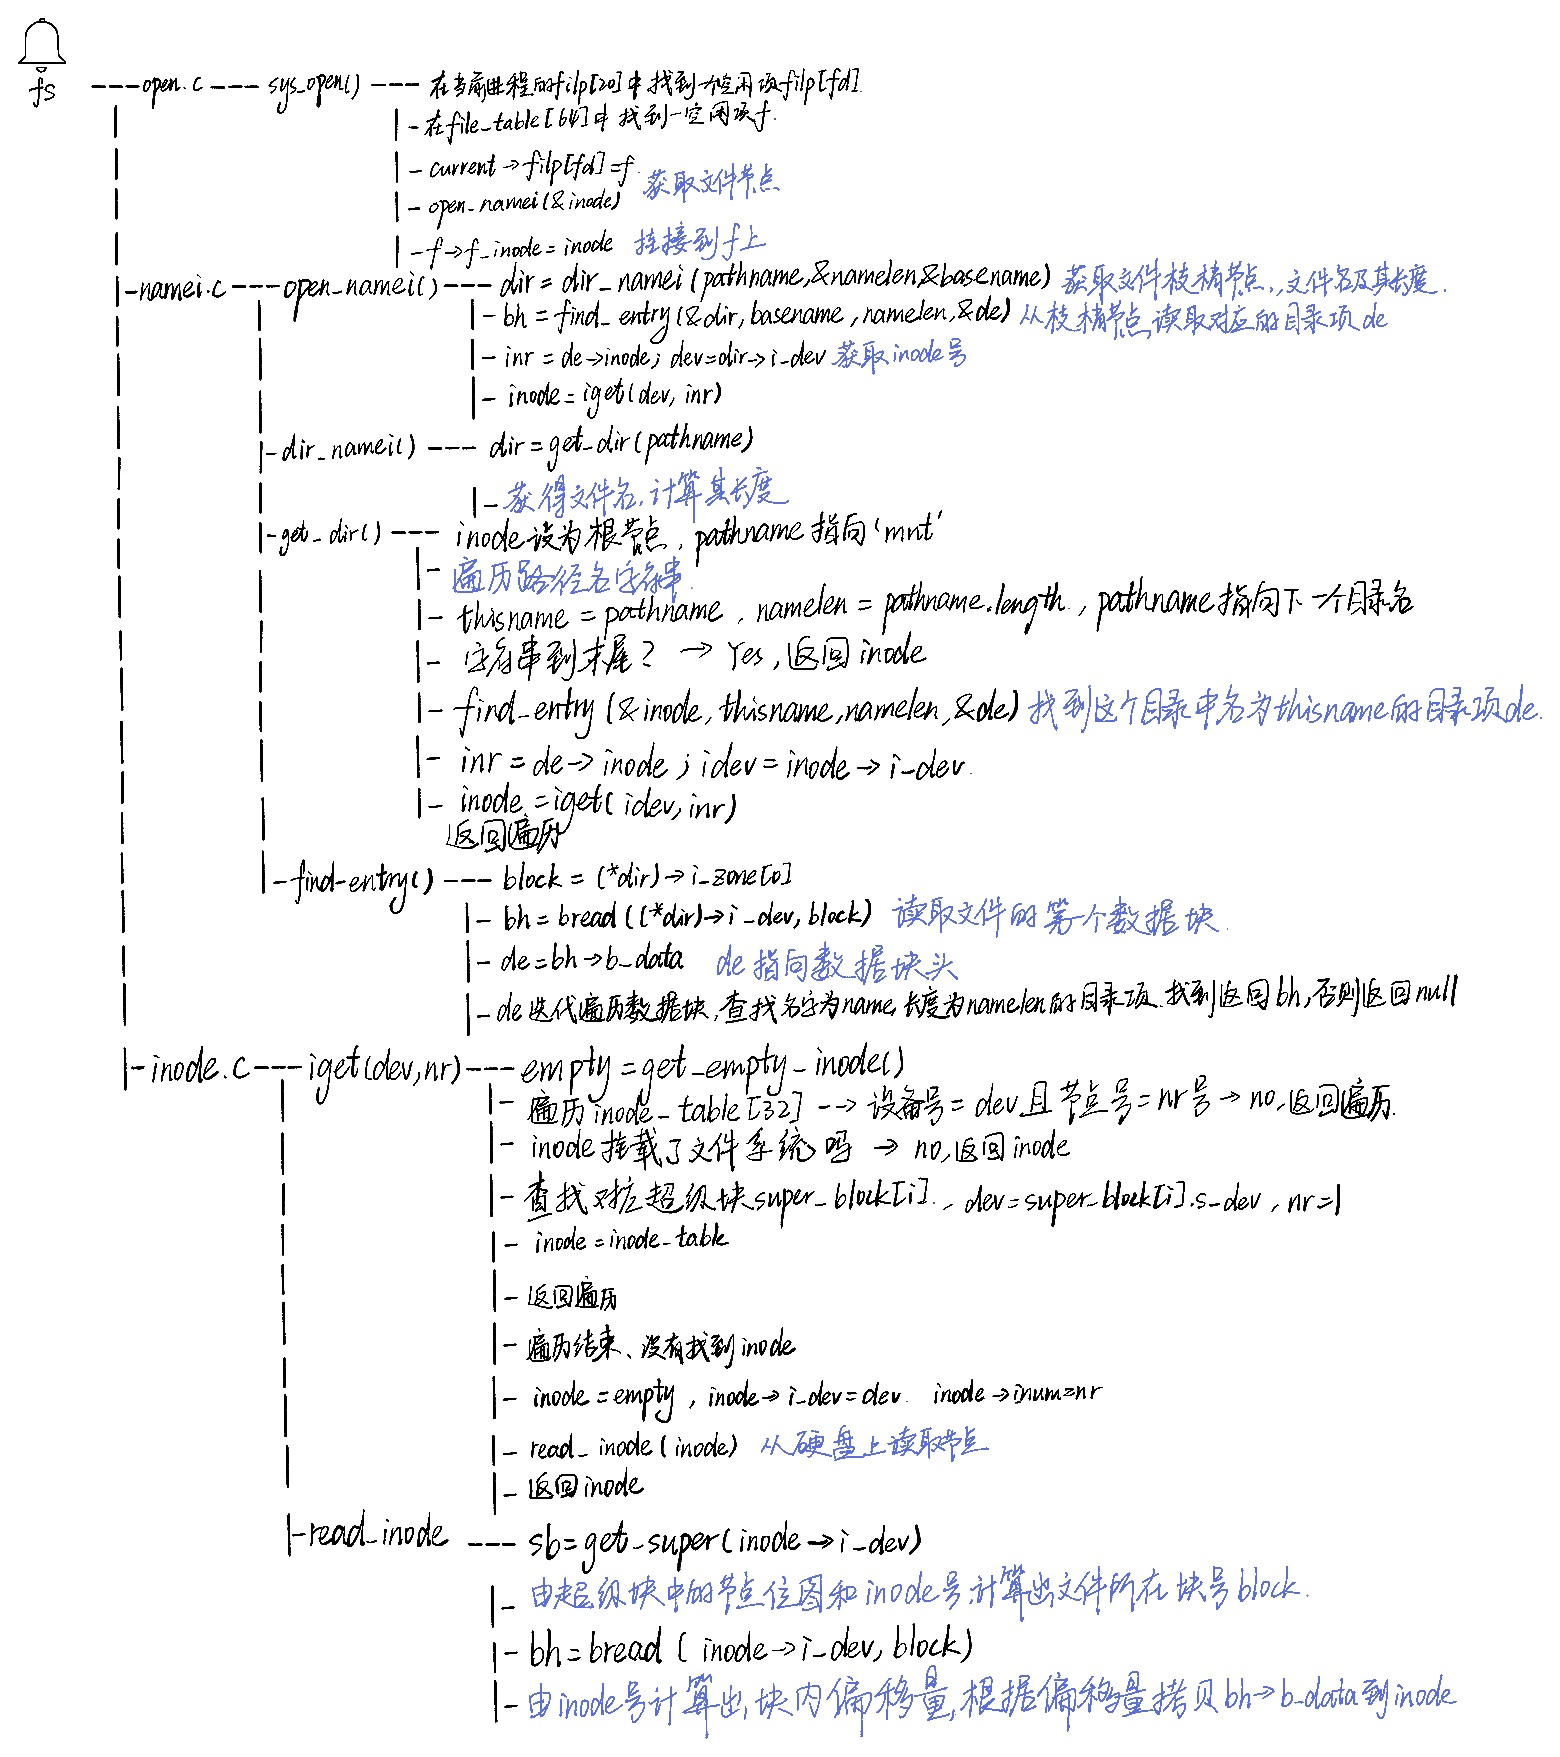 fs ---open.c --- sys_open() --- 在当前进程的filp[20]中找到一个空闲项filp[fd].
|-在file_table[64]中找到一空闲项f.
|- current→filp[fd]=f.
获取文件节点
|- open_namei(&inode)
|-f→f_inode=inode 挂接到f上
|-namei.c---open_namei()--- dir=dir_namei(pathname,&namelen,&basename) 获取文件枝梢节点,,文件名及其长度.
|- bh=find_entry(&dir,basename,namelen,&de) 从枝梢节点读取对应的目录项de
|- inr=de→inode; dev=dir→i_dev 获取inode号
|- inode=iget(dev,inr)
|-dir_namei() --- dir=get_dir(pathname)
|-获得文件名,计算其长度
|-get_dir() --- inode设为根节点,pathname指向'mnt'
|- 遍历路径名字符串.
|- thisname=pathname,namelen=pathname.length,pathname指向下一个目录名
|- 字符串到末尾? → Yes,返回inode
|- find_entry(&inode,thisname,namelen,&de)找到这个目录中名为thisname的目录项de.
|- inr=de→inode;idev=inode→i_dev.
|- inode=iget(idev,inr)
返回遍历
|-find-entry() --- block=(*dir)→i_zone[0]
|- bh=bread((*dir)→i_dev,block) 读取文件的第一个数据块.
|- de=bh→b_data de指向数据块头
|-de迭代遍历数据块,查找名字为name,长度为namelen的目录项.找到返回bh,否则返回null
|-inode.c---iget(dev,nr)--- empty=get_empty_inode()
|- 遍历inode_table[32] --→ 设备号=dev且节点号=nr号→no,返回遍历.
|- inode挂载了文件系统吗 → no,返回inode
|- 查找对应超级块super_block[i].,dev=super_block[i].s_dev,nr=1
|- inode=inode_table
|- 返回遍历
|- 遍历结束、没有找到inode
|- inode=empty,inode→i_dev=dev. inode→inum=nr
|- read_inode(inode) 从硬盘上读取节点
|- 返回inode
|-read_inode --- sb=get_super(inode→i_dev)
|- 由超级块中的节点位图和inode号,计算出文件所在块号block.
|- bh=bread(inode→i_dev,block)
|- 由inode号计算出,块内偏移量,根据偏移量拷贝bh→b_data到inode